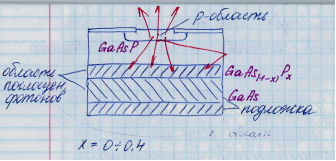 p-область
GaAsP
области
поглощен.
фотонов
GaAs(1-x)Px
GaAs
подложка
x = 0÷0.4